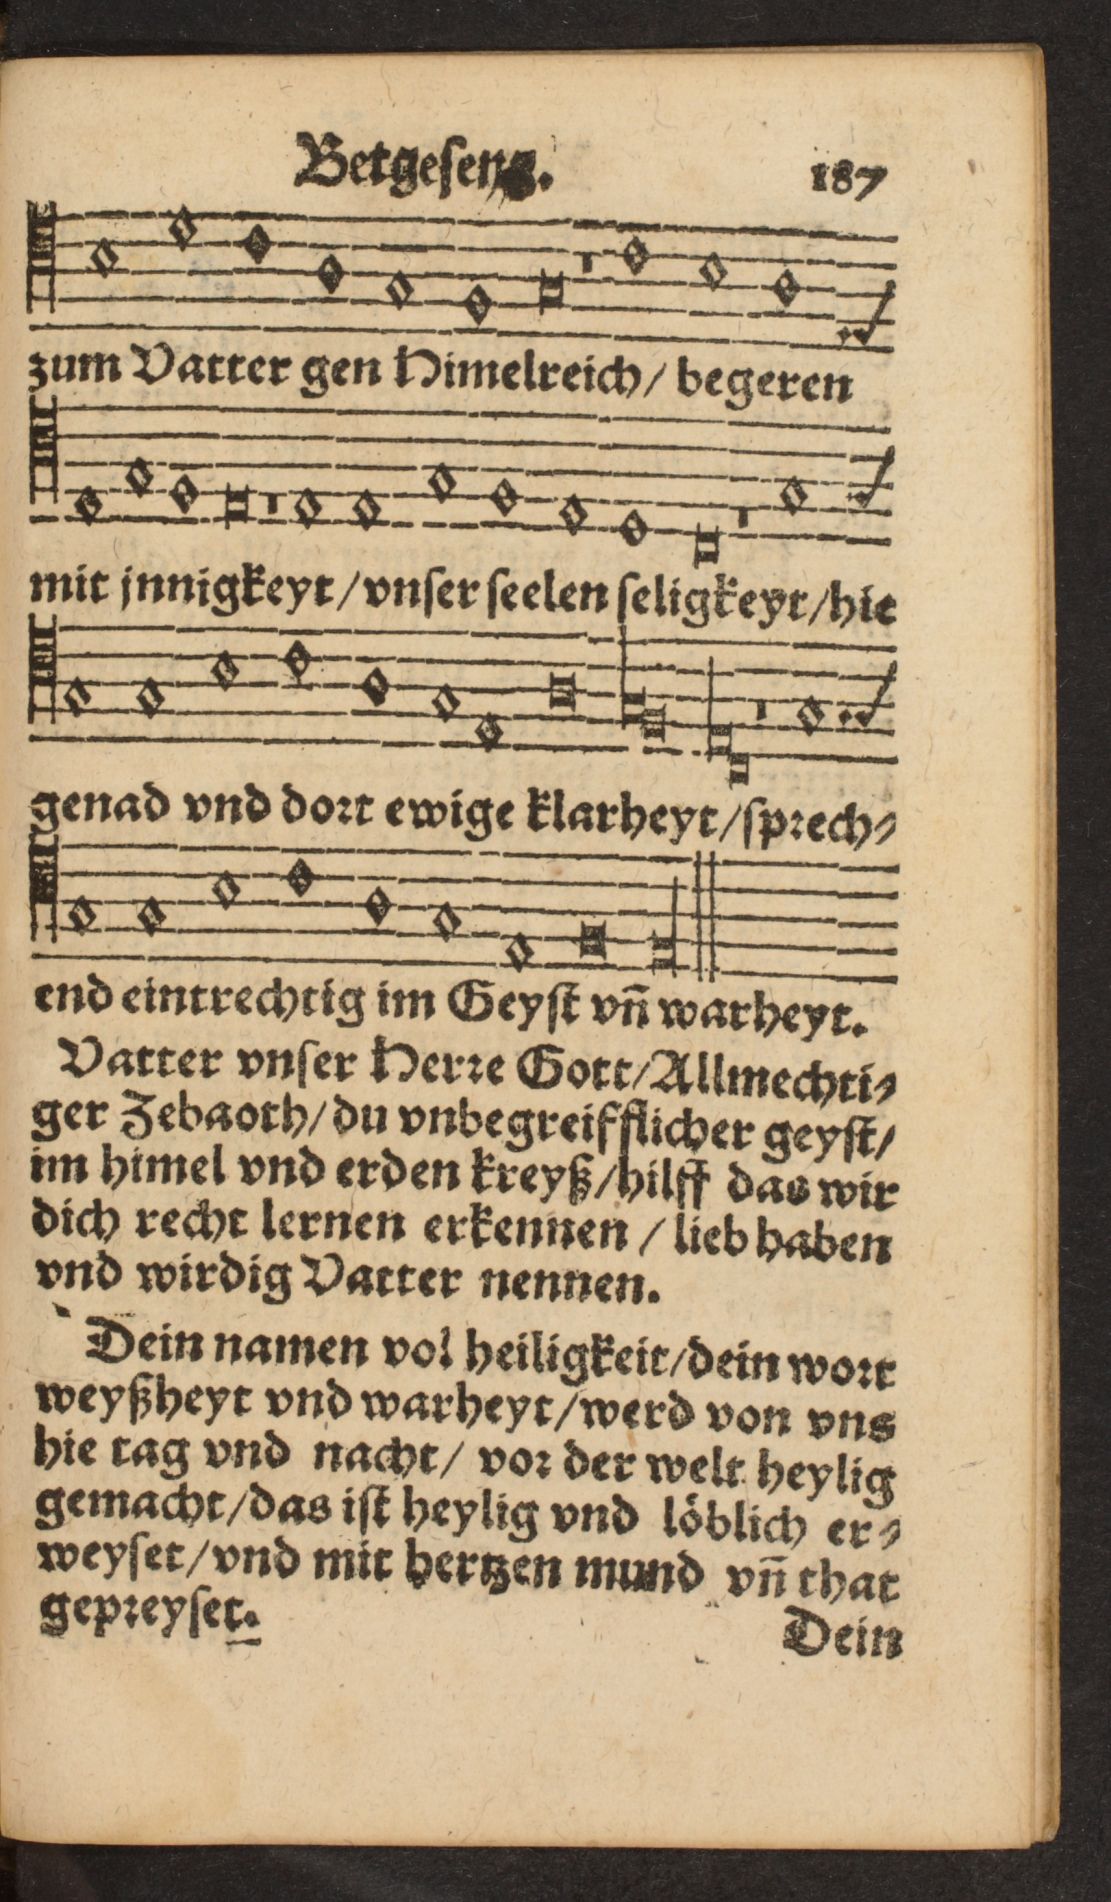 Betgeseng. 187
zum Vatter gen Himelreich/ begeren
mit jnnigkeyt/vnser seelen seligkeyt/hie
genad vnd dort ewige klarheyt/sprech⸗
end eintrechtig im Geyst vn̄ warheyt.
Vatter vnser Herre Gott/Allmechti⸗
ger Zebaoth/du vnbegreifflicher geyst/
im himel vnd erden kreyß/hilff das wir
dich recht lernen erkennen / lieb haben
vnd wirdig Vatter nennen.
Dein namen vol heiligkeit/dein wort
weyßheyt vnd warheyt/werd von vns
hie tag vnd nacht/ vor der welt heylig
gemacht/das ist heylig vnd löblich er⸗
weyset/vnd mit hertzen mund vn̄ that
gepreyset.
Dein